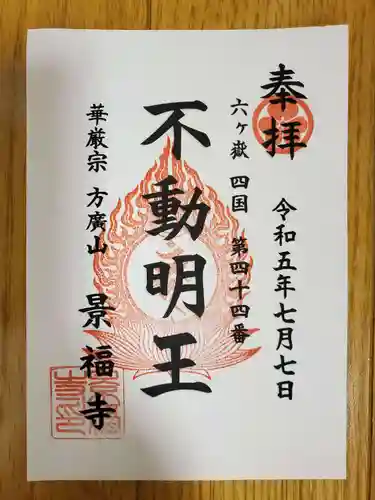 奉拝
令和五年七月七日
六ヶ嶽 四国 第四十四番
不動明王
華厳宗 方廣山
景福寺